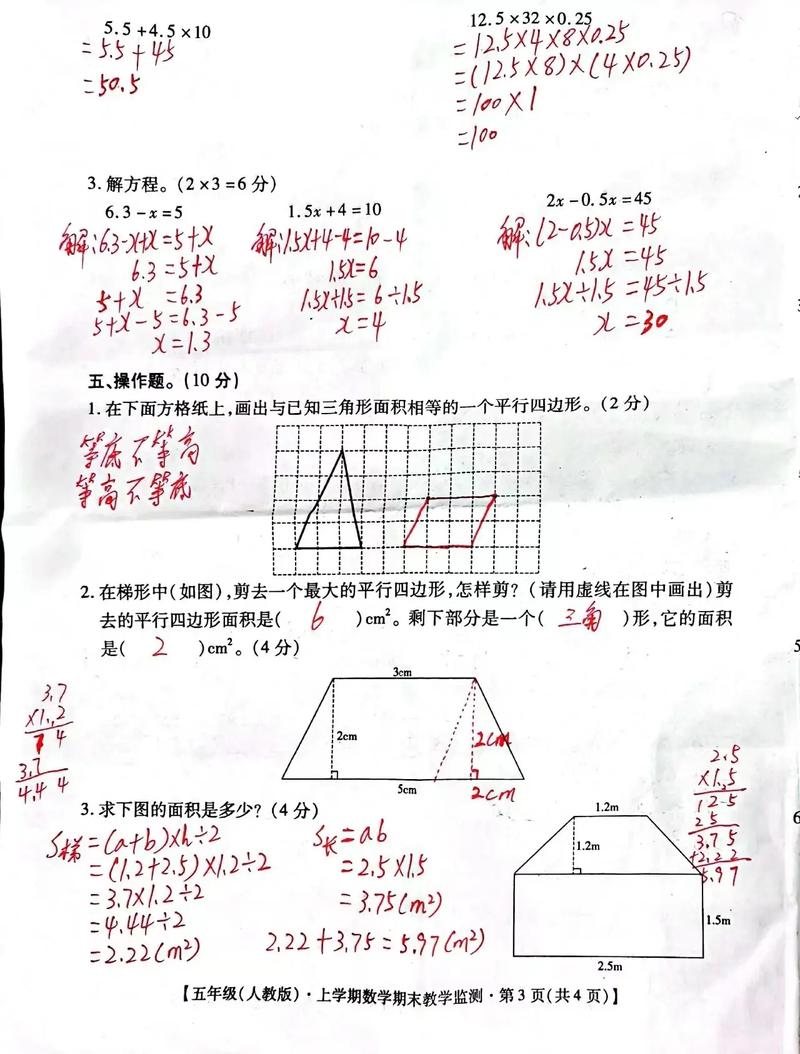 5.5+4.5×10
=5.5+45
=50.5
12.5×32×0.25
=12.5×4×8×0.25
=(12.5×8)×(4×0.25)
=100×1
=100
3.解方程。(2×3=6分)
6.3-x=5
解:6.3-x+x=5+x
6.3=5+x
5+x=6.3
5+x-5=6.3-5
x=1.3
1.5x+4=10
解:1.5x+4-4=10-4
1.5x=6
1.5x÷1.5=6÷1.5
x=4
2x-0.5x=45
解:(2-0.5)x=45
1.5x=45
1.5x÷1.5=45÷1.5
x=30
五、操作题。(10分)
1.在下面方格纸上,画出与已知三角形面积相等的一个平行四边形。(2分)
等底不等高
等高不等底
2.在梯形中(如图),剪去一个最大的平行四边形,怎样剪?(请用虚线在图中画出)剪
去的平行四边形面积是( 6 )cm²。剩下部分是一个( 三角 )形,它的面积
是( 2 )cm²。(4分)
3cm
2cm
2cm
5cm
2cm
3.7
×1.2
7 4
3.7
4.4 4
3.求下图的面积是多少?(4分)
S梯=(a+b)×h÷2
=(1.2+2.5)×1.2÷2
=3.7×1.2÷2
=4.44÷2
=2.22(m²)
S长=ab
=2.5×1.5
=3.75(m²)
2.22+3.75=5.97(m²)
1.2m
1.2m
1.5m
2.5m
2.5
×1.5
125
25
3.75
+2.22
5.97
【五年级(人教版)·上学期数学期末教学监测·第3页(共4页)】